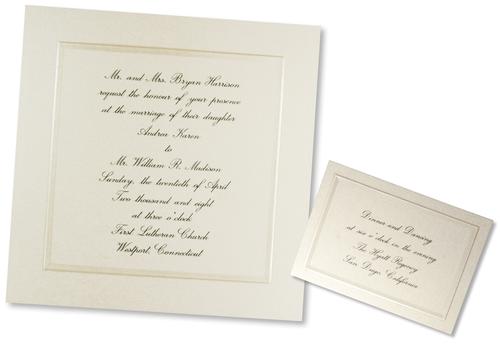 Mr. and Mrs. Bryan Harrison
request the honour of your presence
at the marriage of their daughter
Andrea Karen
to
Mr. William R. Madison
Sunday, the twentieth of April
Two thousand and eight
at three o'clock
First Lutheran Church
Westport, Connecticut
Dinner and Dancing
at six o'clock in the evening
The Hyatt Regency
San Diego, California